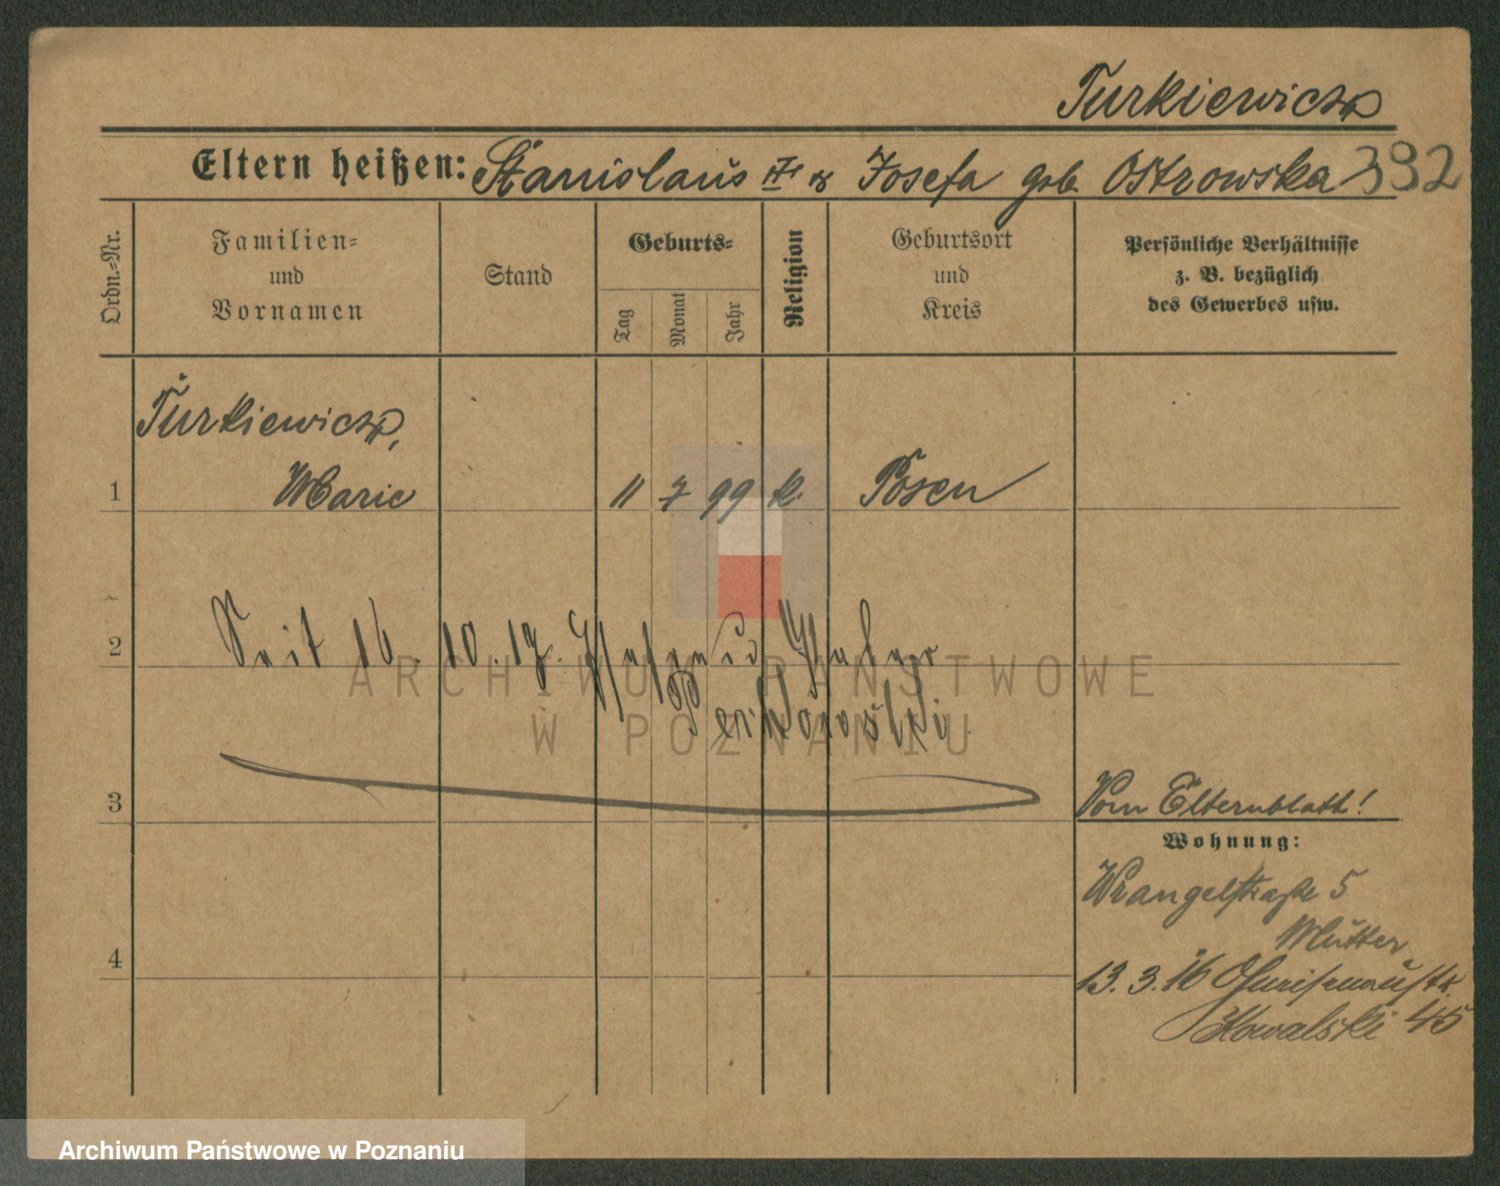 Turkiewicz
Eltern heißen: Stanislaus u. Josefa geb. Ostrowska 392
Ordn.=Nr.
Familien=
und
Vornamen
Stand
Geburts=
Tag
Monat
Jahr
Religion
Geburtsort
und
Kreis
Persönliche Verhältnisse
z. B. bezüglich
des Gewerbes usw.
Turkiewicz,
1 Marie 11 7 99 k. Posen
2 Seit 16. 10. 17.
ARCHIWUM PAŃSTWOWE
W POZNANIU
3 Vom Elternblatt!
Wohnung:
Wrangelstraße 5
Mutter
4 13. 3. 16
Kowalski 45
Archiwum Państwowe w Poznaniu